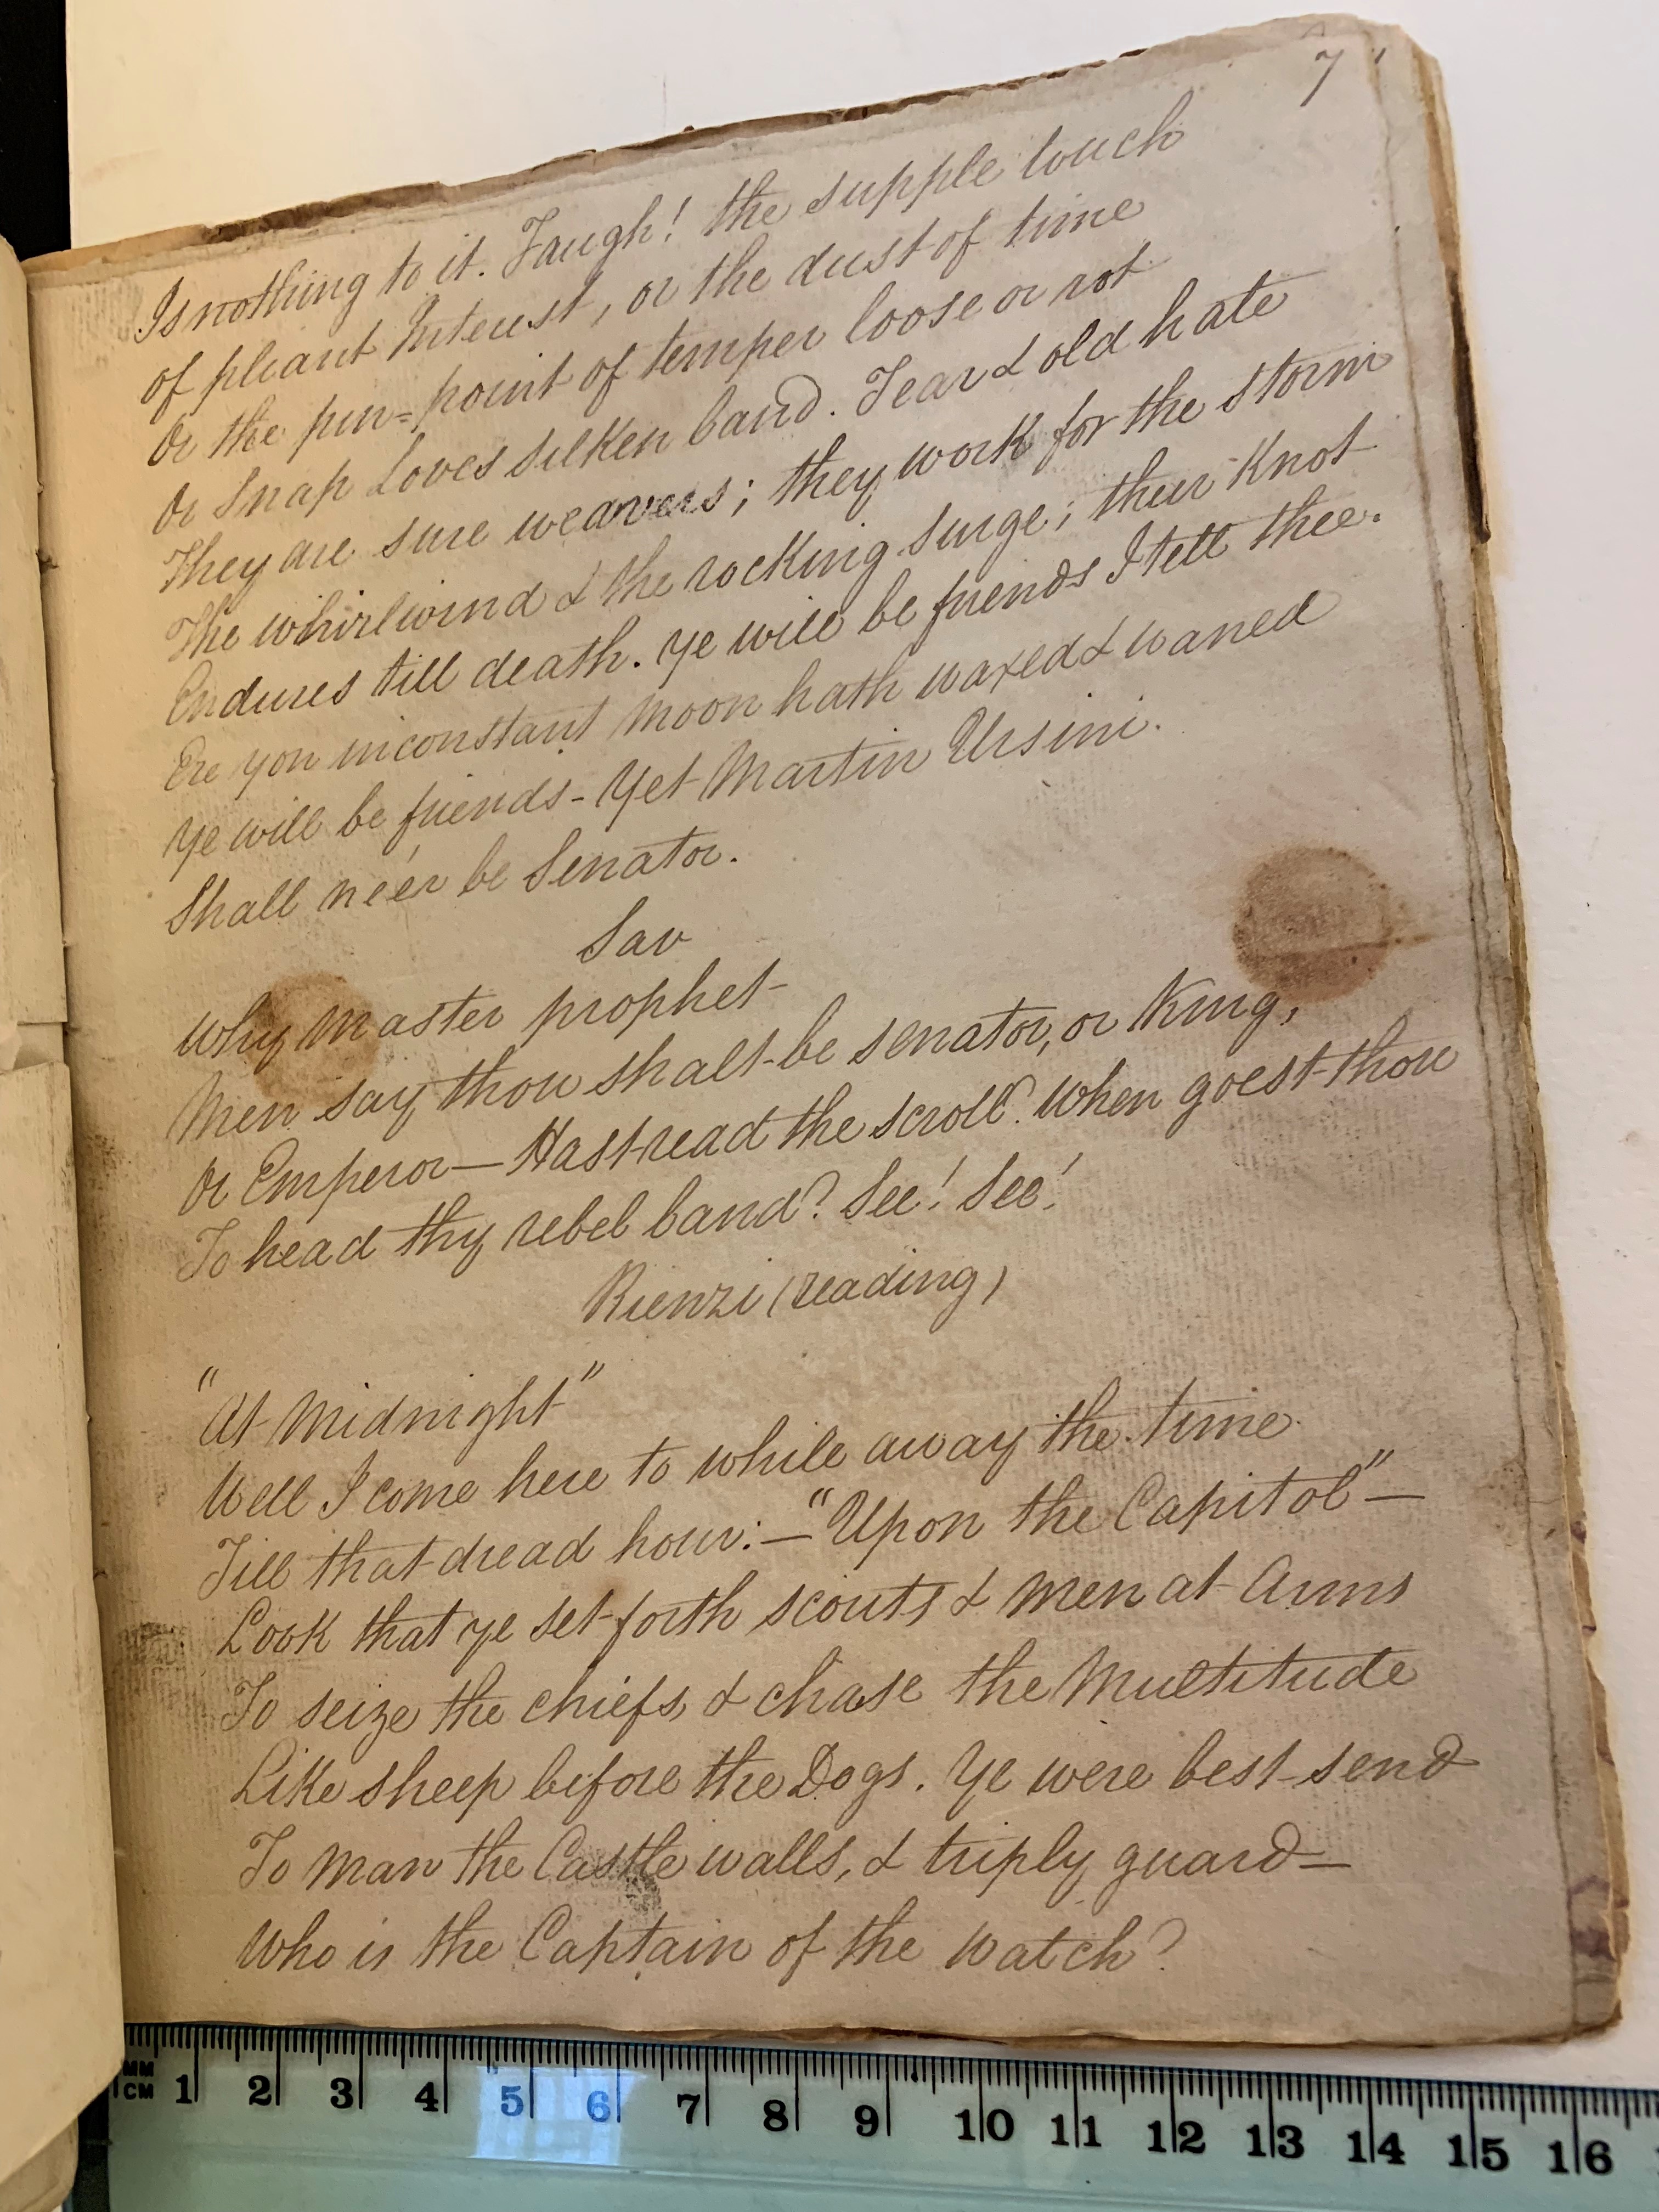 7
Is nothing to it. Faugh! the supple touch
of pliant Interest, or the dust of time
Or the pin=point of temper loose or rot
Or Snap Loves silken band. Fear & old hate
They are sure weavers; they work for the storm
The whirlwind & the rocking surge; their Knot
Endures till death. Ye will be friends I tell thee.
Ere yon inconstant Moon hath waxed & waned
Ye will be friends - Yet Martin Ursini.
Shall né'er be Senator.
Sav
Why Master prophet-
Men say thou shalt be senator, or King,
Or Emperor— Hast read the scroll? When goest thou
To head thy rebel band? See! See!
Rienzi (reading)
"At Midnight"
Well I come here to while away the time
Till that dread hour:—"Upon the Capitol"—
Look that ye set forth scouts & Men at Arms
To seize the chiefs, & chase the Multitude
Like sheep before the Dogs. Ye were best send
To Man the Castle walls, & triply guard—
Who is the Captain of the Watch?
MM
CM 1 2 3 4 5 6 7 8 9 10 11 12 13 14 15 16